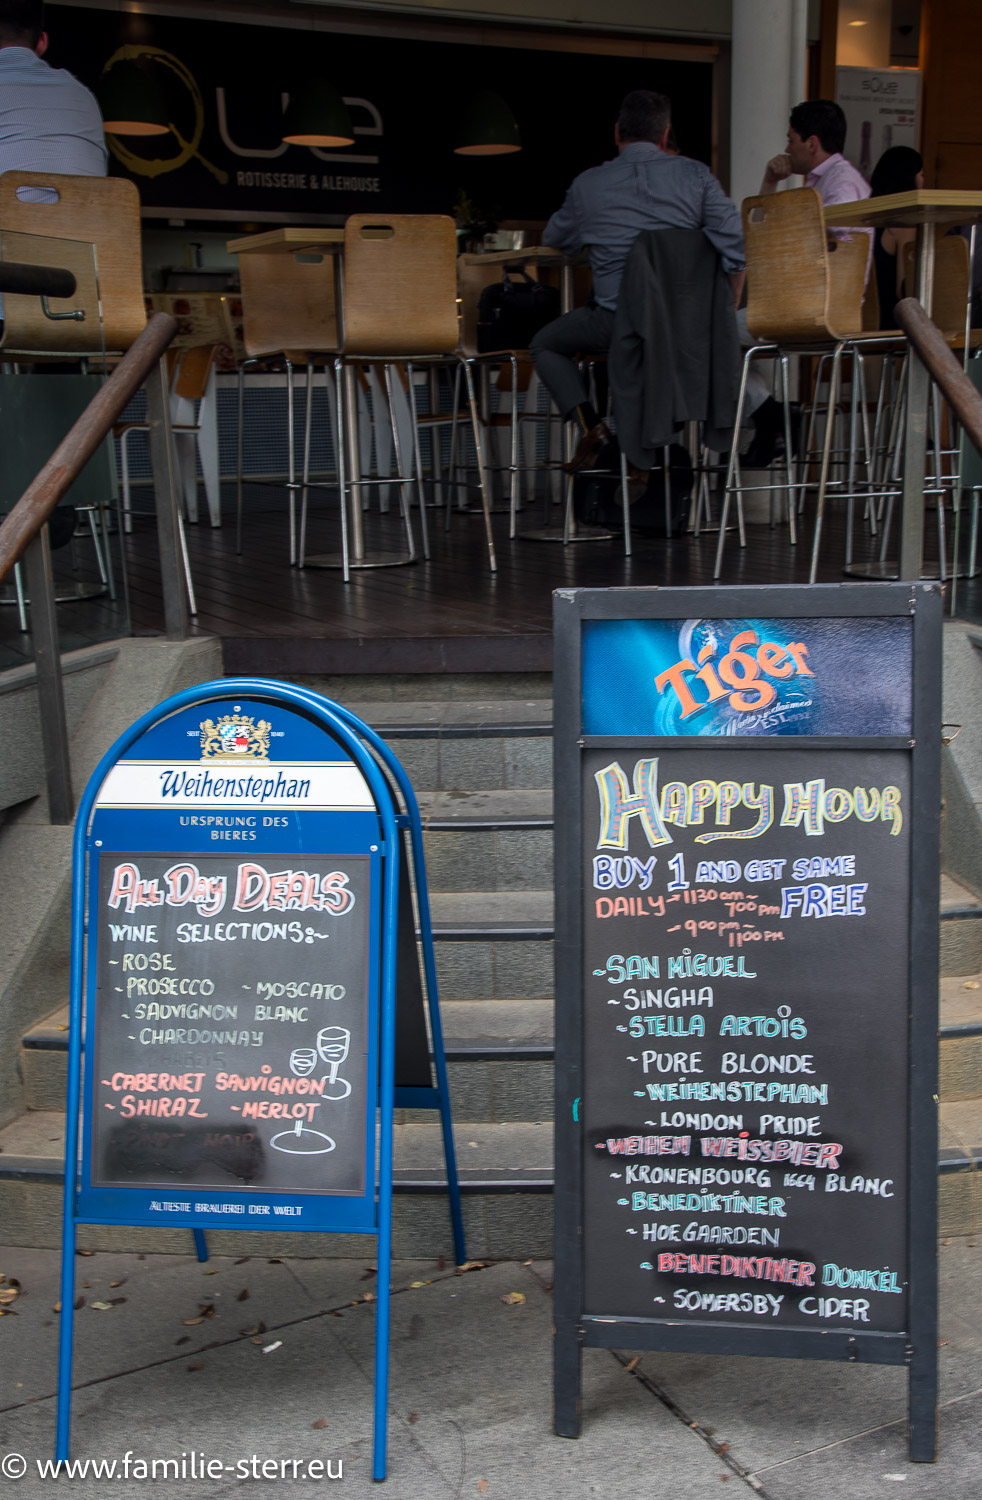 Que
ROTISSERIE & ALEHOUSE
sQue
SEIT 1040
Weihenstephan
URSPRUNG DES
BIERES
ALL DAY DEALS
WINE SELECTIONS:~
~ROSE
~PROSECCO ~MOSCATO
~SAUVIGNON BLANC
~CHARDONNAY
~CABERNET SAUVIGNON
~SHIRAZ ~MERLOT
PINOT NOIR
ÄLTESTE BRAUEREI DER WELT
Tiger
EST. 1932
HAPPY HOUR
BUY 1 AND GET SAME
FREE
DAILY~1130am~
700pm
~900pm~
1100PM
~SAN MIGUEL
~SINGHA
~STELLA ARTOIS
~PURE BLONDE
~WEIHENSTEPHAN
~LONDON PRIDE
~WEIHEN WEISSBIER
~KRONENBOURG 1664 BLANC
~BENEDIKTINER
~HOEGAARDEN
~BENEDIKTINER DUNKEL
~SOMERSBY CIDER
© www.familie-sterr.eu